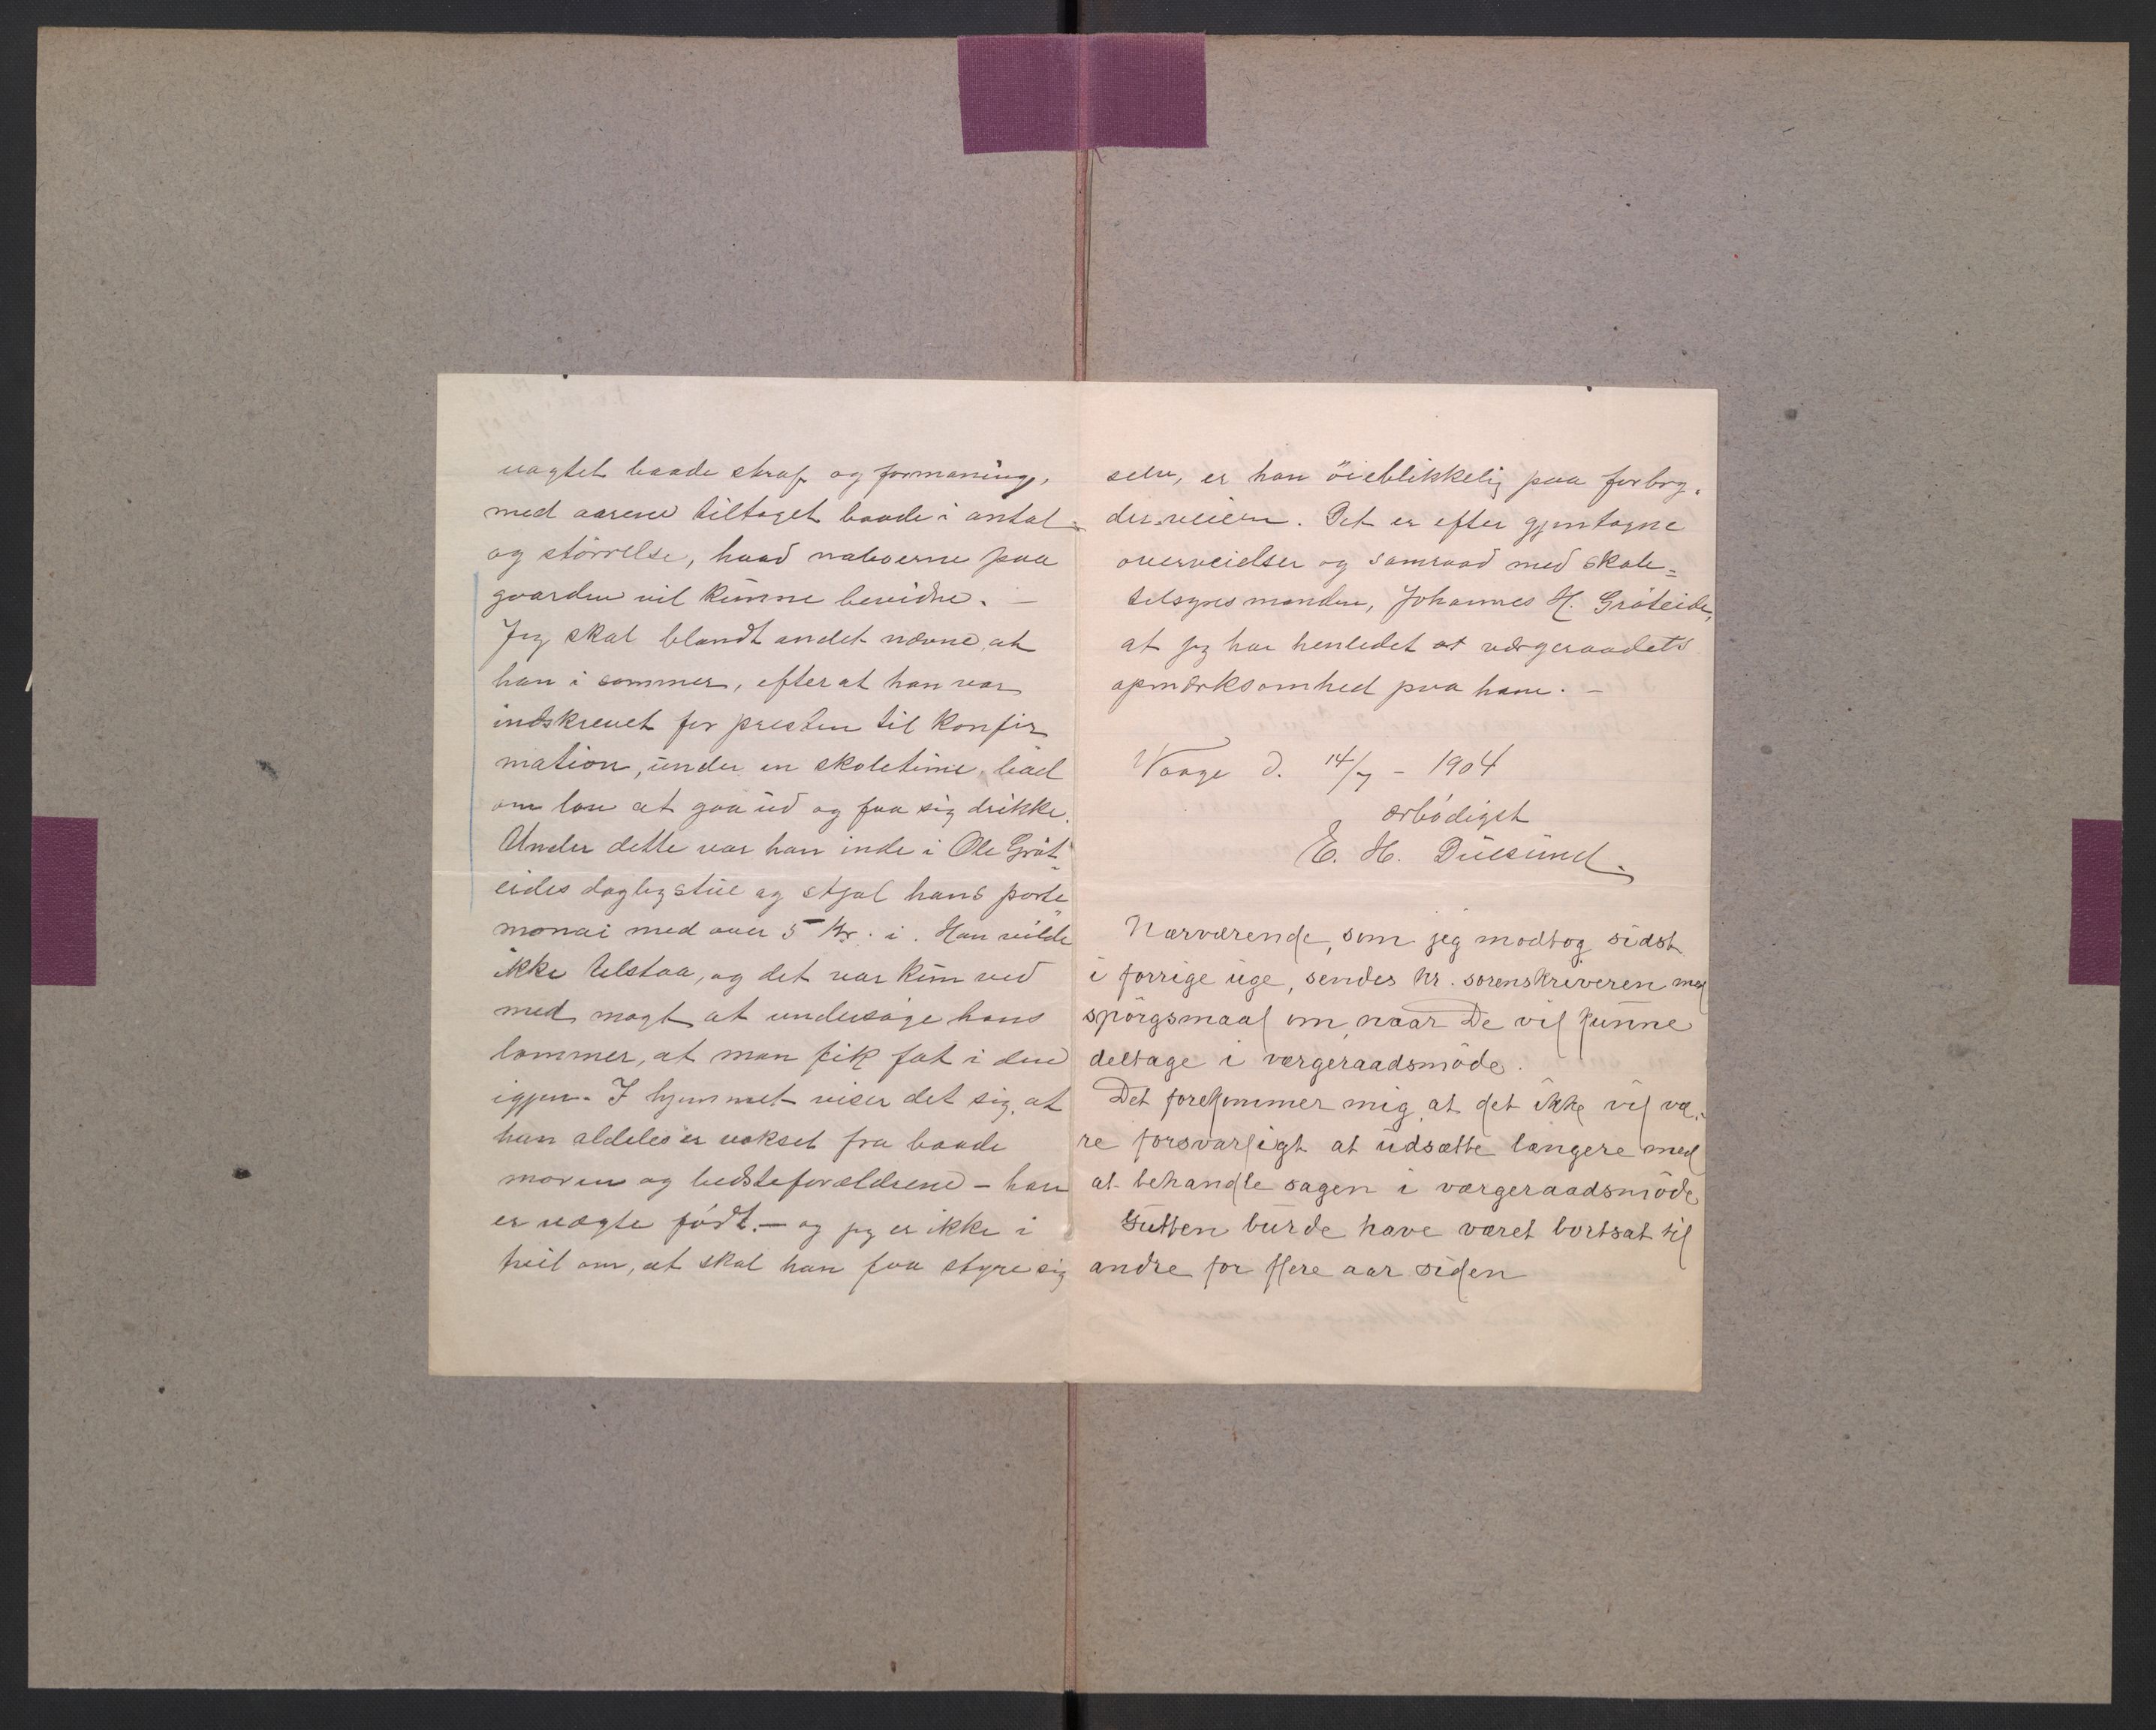 uagtet baade straf og formaning,
med aarene tiltaget baade i antal
og störrelse, hvad naboerne paa
gaarden vil kunne bevidne. —
Jeg skal blandt andet nævne, at
han i sommer, efter at han var
indskrevet for presten til konfir
mation, under en skoletime, bad
om lov at gaa ud og faa sig drikke.
Under dette var han inde i Ole Gröt
eides daglystue og stjal hans porte
monai med over 5 Kr. i. Han vilde
ikke tilstaa, og det var kun ved
med magt at undersöge hans
lommer, at man fik fat i den
igjen. I hjemmet viser det sig, at
han aldeles er vokset fra baade
moren og bedsteforældrene – han
er uægte födt. — og jeg er ikke i
tvil om, at skal han faa styre sig
selv, er han öieblikkelig paa forbry-
derveien. Det er efter gjentagne
overveielser og samraad med skole=
tilsynsmanden, Johannes H. Gröteide,
at jeg har henledet at værgeraadets
opmærksomhed paa ham. –
Vaage d. 14/7 – 1904
ærbödigst
E. H. Duesund.
Nærværende, som jeg modtog sidst
i forrige uge, sendes hr. sorenskriveren med
spörgsmaal om, naar De vil kunne
deltage i værgeraadsmöde.
Det forekommer mig, at det ikke vil væ-
re forsvarligt at udsætte længere med
at behandle sagen i værgeraadsmöde
Gutten burde have været bortsat til
andre for flere aar siden